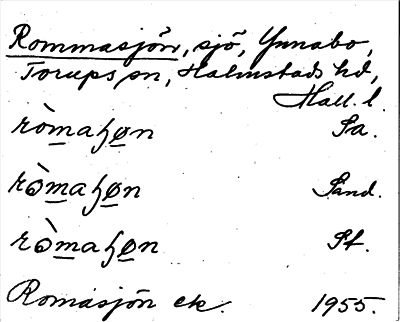 Rommasjön, sjö, Ynnabo,
Torups sn, Halmstads hd,
Hall. l.
ròmaɧøn Sa.
ròmaɧøn Sand.
ròmaɧøn St.
Romasjön ek. 1955.